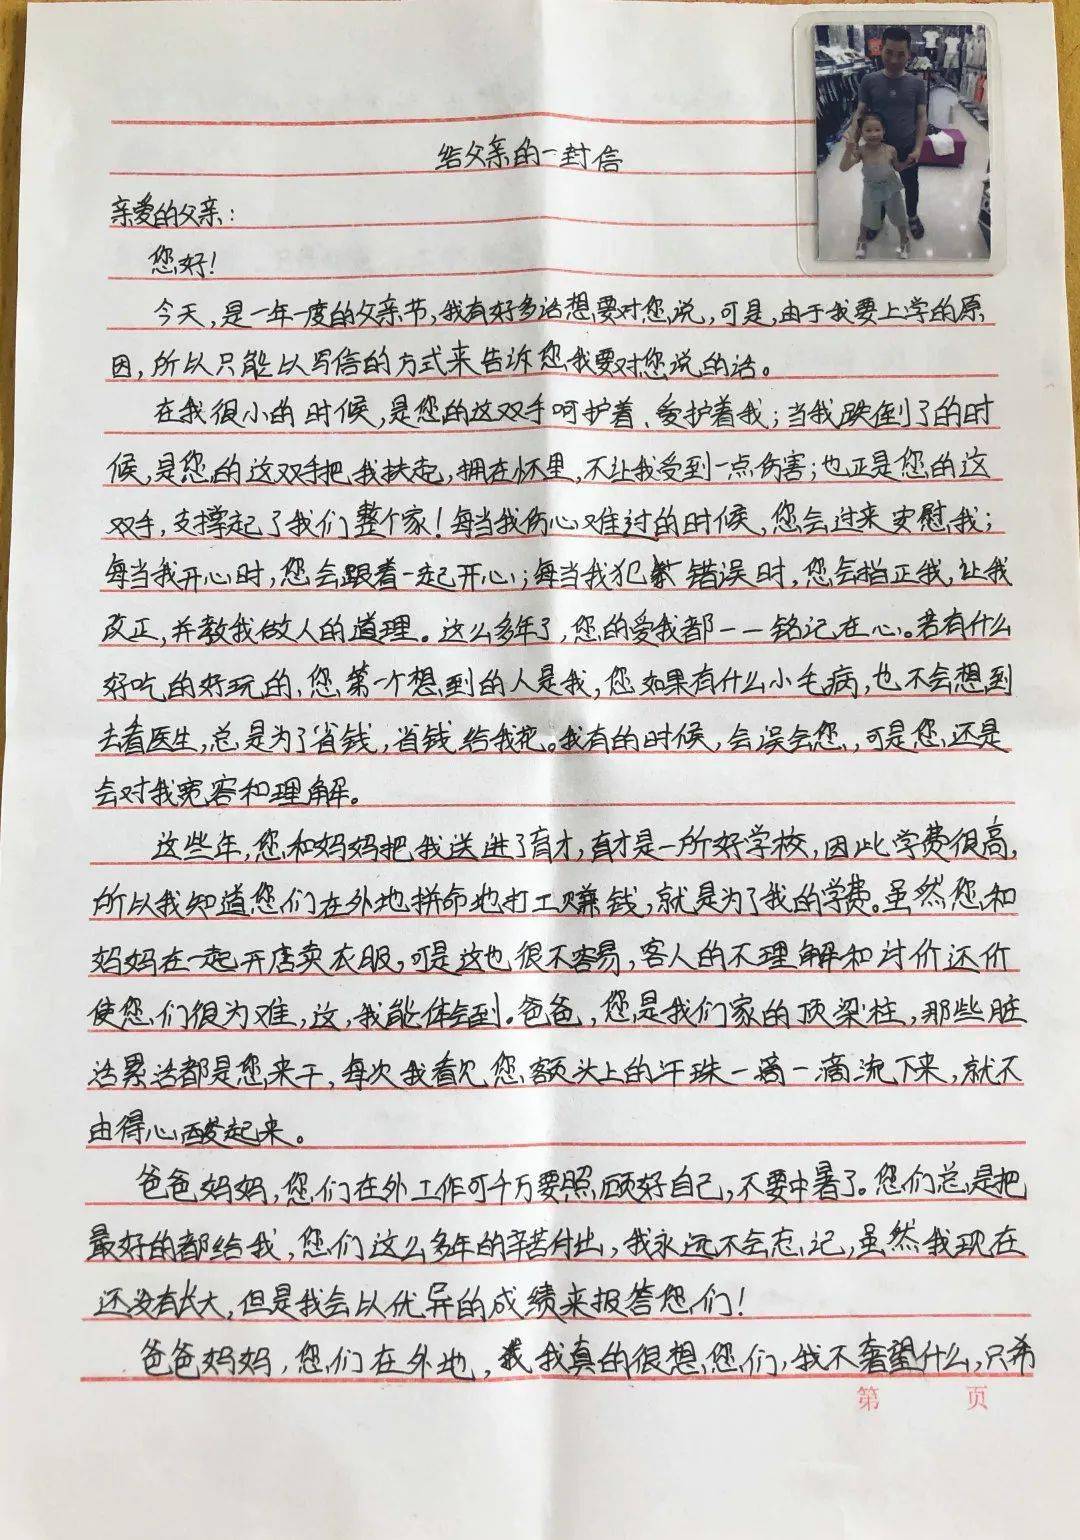 给父亲的一封信
亲爱的父亲:
您好!
今天,是一年一度的父亲节,我有好多话想要对您说,可是,由于我要上学的原
因,所以只能以写信的方式来告诉您我要对您说的话。
在我很小的时候,是您的这双手呵护着、爱护着我;当我跌倒了的时
候,是您的这双手把我扶起,拥在怀里,不让我受到一点伤害;也正是您的这
双手,支撑起了我们整个家!每当我伤心难过的时候,您会过来安慰我;
每当我开心时,您会跟着一起开心;每当我犯错误时,您会指正我,让我
改正,并教我做人的道理。这么多年了,您的爱我都一一铭记在心。若有什么
好吃的好玩的,您第一个想到的人是我,您如果有什么小毛病,也不会想到
去看医生,总是为了省钱,省钱给我花。我有的时候,会误会您,可是您还是
会对我宽容和理解。
这些年,您和妈妈把我送进了育才,育才是一所好学校,因此学费很高,
所以我知道您们在外地拼命地打工赚钱,就是为了我的学费。虽然您和
妈妈在一起开店卖衣服,可是这也很不容易,客人的不理解和讨价还价
使您们很为难,这,我能体会到。爸爸,您是我们家的顶梁柱,那些脏
活累活都是您来干,每次我看见您额头上的汗珠一滴一滴流下来,就不
由得心酸起来。
爸爸妈妈,您们在外工作可千万要照顾好自己,不要中暑了。您们总是把
最好的都给我,您们这么多年的辛苦付出,我永远不会忘记,虽然我现在
还没有长大,但是我会以优异的成绩来报答您们!
爸爸妈妈,您们在外地,我真的很想您们,我不奢望什么,只希
第 页